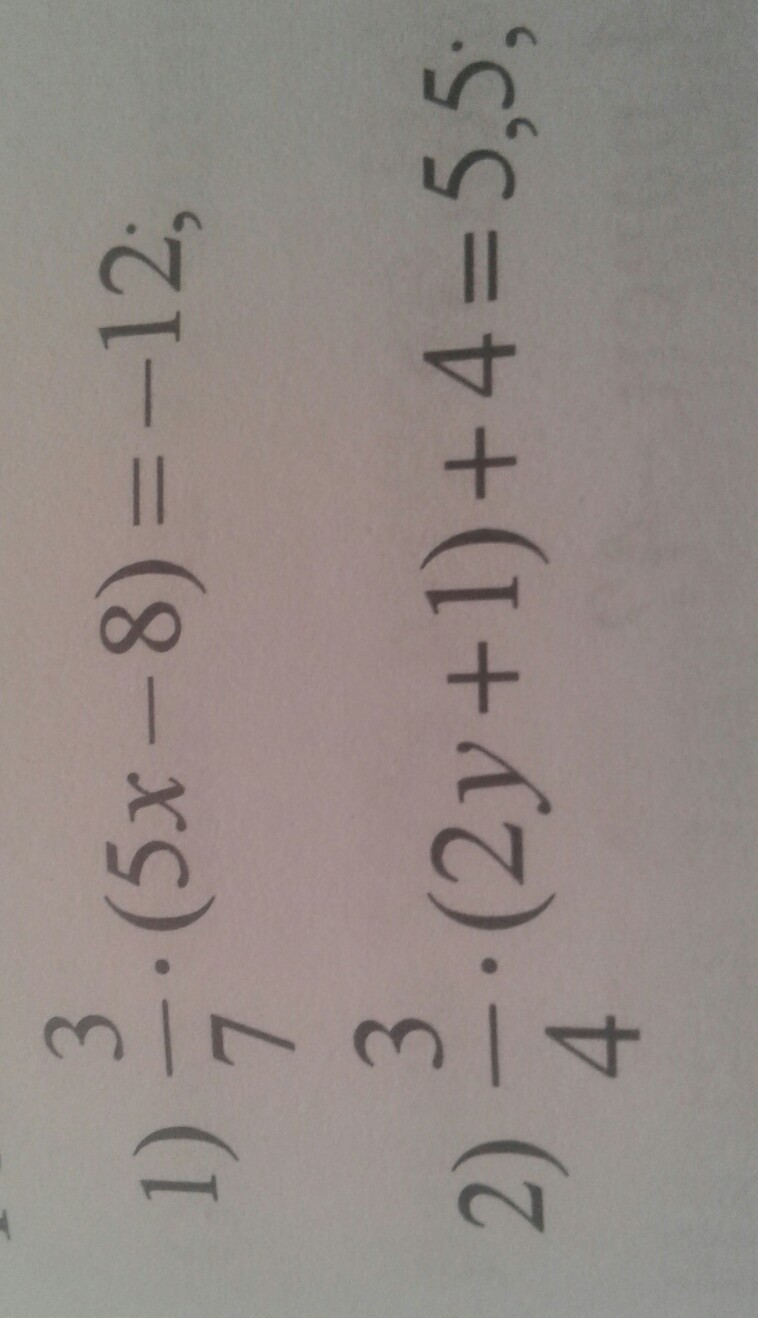 1) 3/7 · (5x − 8) = −12;
2) 3/4 · (2y + 1) + 4 = 5,5;